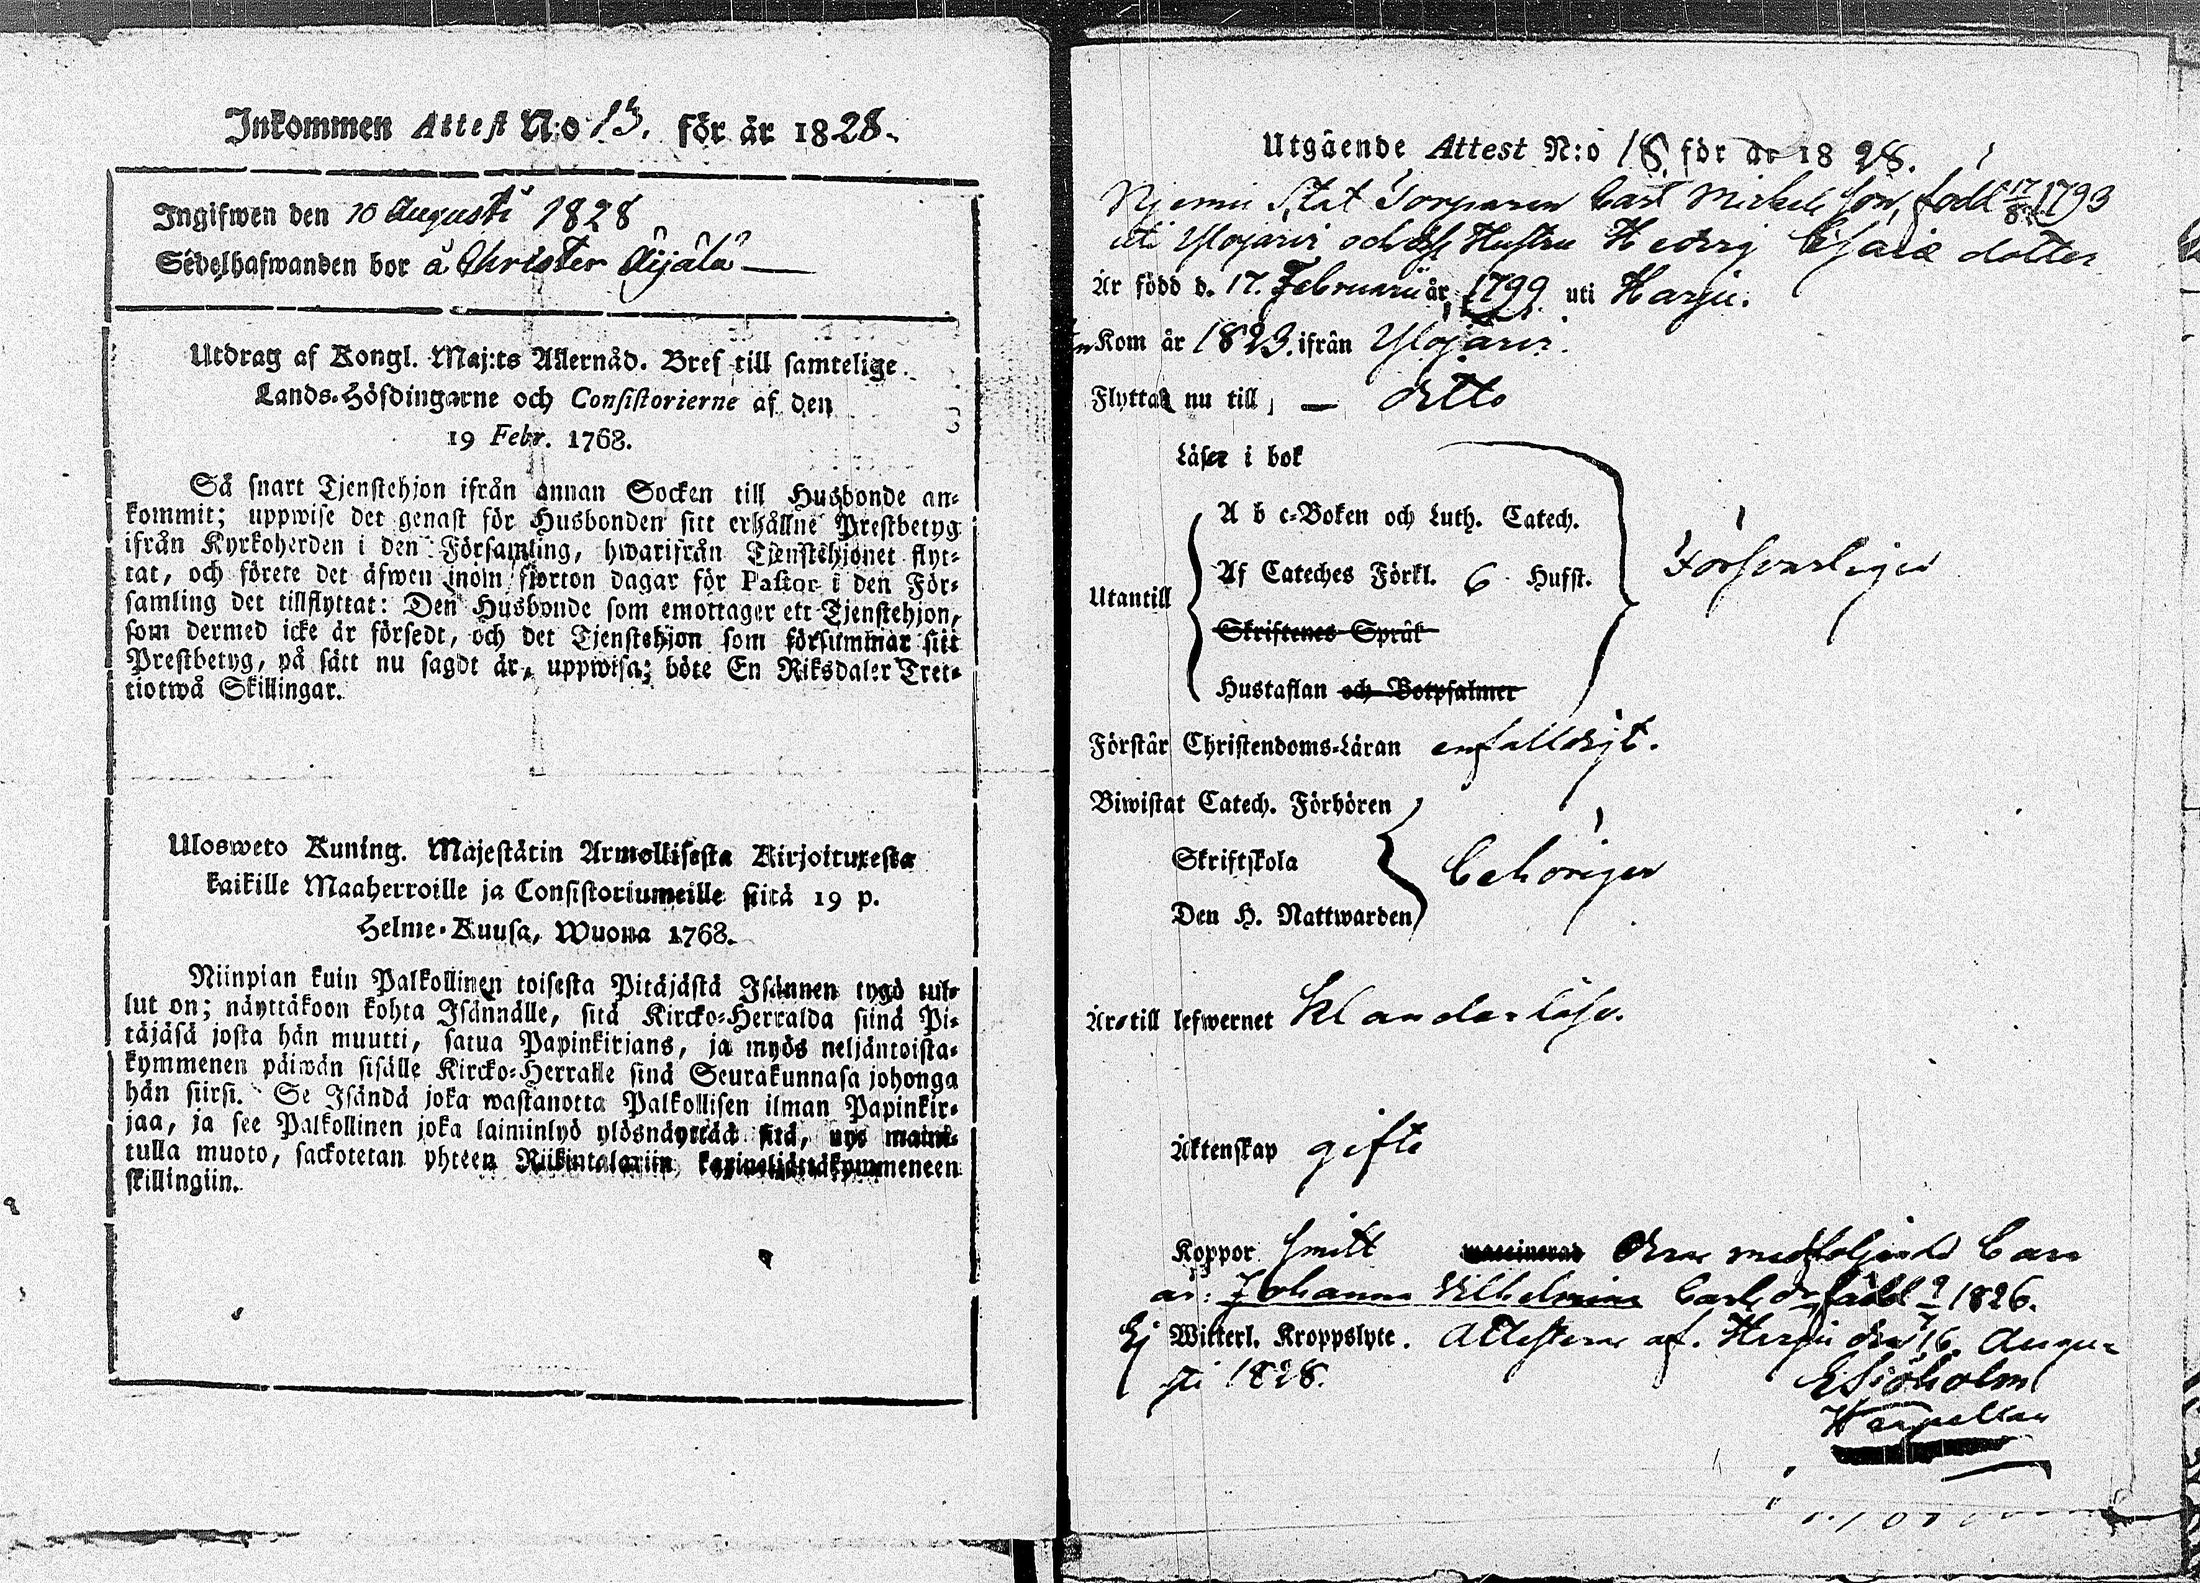 Inkommen Attest N:o 13. för år 1828.
Ingifwen den 10 Augusti 1828
Sedelhafwanden bor å Christer Äijälä
Utdrag af Kongl. Maj:ts Allernåd. Bref till samtelige
Lands-Höfdingarne och Consistorierne af den
19 Febr. 1768.
Så snart Tjenstehjon ifrån annan Socken till Husbonde an-
kommit; uppwise det genast för Husbonden sitt erhållne Prestbetyg
ifrån Kyrkoherden i den Församling, hwarifrån Tjenstehjonet flyt-
tat, och förete det äfwen inom fjorton dagar för Pastor i den För-
samling det tillflyttat: Den Husbonde som emottager ett Tjenstehjon,
som dermed icke är försedt, och det Tjenstehjon som försummar sitt
Prestbetyg, på sätt nu sagdt är, uppwisa; böte En Riksdaler Tret-
tiotwå Skillingar.
Ulosweto Kuning. Majestätin Armollisesta Kirjoituxesta
kaikille Maaherroille ja Consistoriumeille siitä 19 p.
Helme-Kuusa, Wuona 1768.
Niinpian kuin Palkollinen toisesta Pitäjästä Isännen tygö tul-
lut on; näyttäkoon kohta Isännälle, sitä Kircko-Herralda siinä Pi-
täjäsä josta hän muutti, satua Papinkirjans, ja myös neljäntoista-
kymmenen päiwän sisälle Kircko-Herralle sinä Seurakunnasa johonga
hän siirsi. Se Isändä joka wastanotta Palkollisen ilman Papinkir-
jaa, ja see Palkollinen joka laiminlyö ylösnäyttää sitä, nys maini-
tulla muoto, sackotetan yhteen Riikintalariin kaxineljättäkymmeneen
skillingiin.
Utgående Attest N:o 18. för år 1828.
Njemi Stat Torparen Carl Mickels son, född 17/8 1793
uti Ylöjärvi och dess Hustru Hedvig Esaie dotter
Är född d. 17. Februarii år 1799 uti Harju.
Kom år 1823. ifrån Ylöjärvi.
Flyttat nu till, — ditto
Läser i bok
A b c-Boken och Luth. Catech.
Utantill Af Cateches Förkl. 6 Hufst. Försvarligen
Skriftenes Språk
Hustaflan och Botpsalmer
Förstår Christendoms-Läran enfalldigt.
Biwistat Catech. Förhören
Skriftskola behörigen
Den H. Nattwarden
Är till lefwernet Klanderlöse.
Äktenskap gifte
Koppor smitt waccinerad Deras medföljande Barn
är: Johanna Vilhelmina Carls dr född 9/7 1826.
Ej Witterl. Kroppslyte. Attesteras af. Harju den 16. Augu-
sti 1828.
E Sjöholm
Kapellan